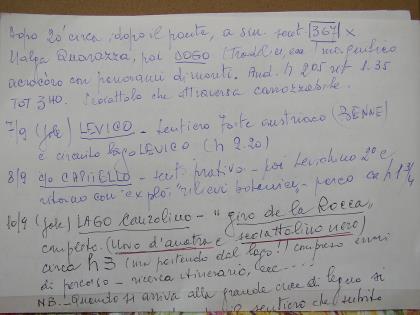 Dopo 20' circa, dopo il ponte, a sin. sent. 367 x
Malga Quarazza, poi
con panorami di monti. And. h 2.05 rit 1.35
TOT 3.40. Scoiattolo che attraversa carrozzabile.
7/9 (sole) LEVICO - Sentiero forte austriaco (BENNE)
e circuito lago LEVICO (h 2.20)
8/9 c/o CAPITELLO - sent. prativo - poi Levichino 2° e
ritorno con rilievi botanici - parco ca h 1 3/4
10/9 (sole) LAGO Canzolino - "giro de la Rocca"
completo. (Uovo d'anatra e scoiattolino nero)
circa h 3 (ma partendo dal lago!) compreso errori
di percorso - ricerca itinerario, ecc ....
NB - Quando si arriva alla grande croce di legno si
il sentiero che subito